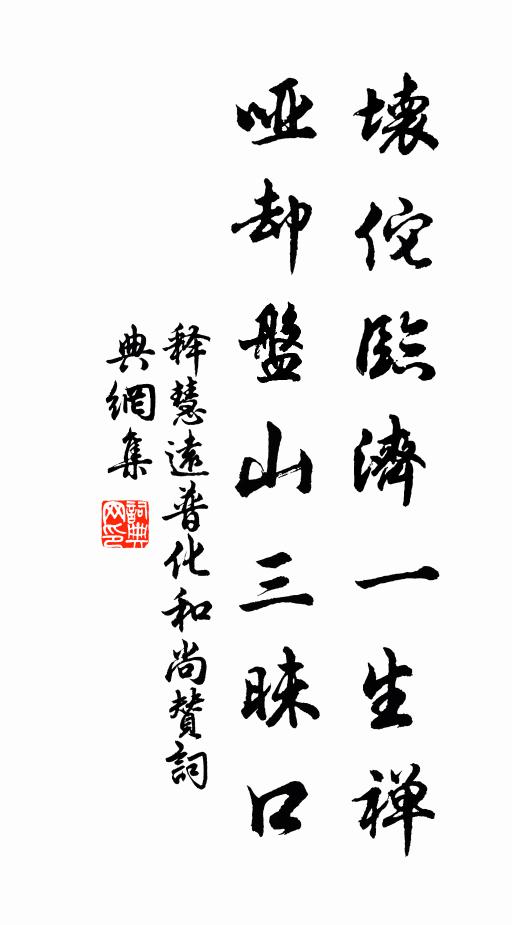 壞侘臨濟一生禅
啞却盤山三昧口
释慧遠普化和尚贊詞
典網集
詞典网印